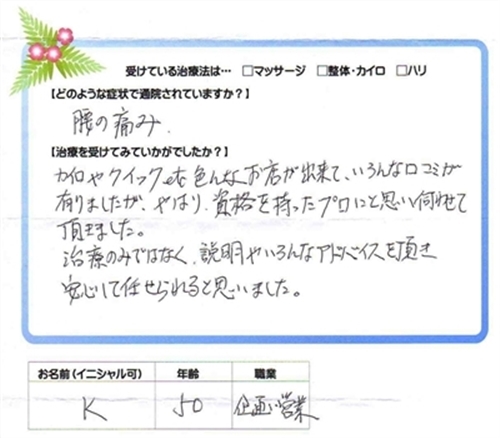 受けている治療法は… □マッサージ □整体・カイロ □ハリ
【どのような症状で通院されていますか？】
腰の痛み.
【治療を受けてみていかがでしたか？】
カイロやクイックetc色んなお店が出来て、いろんな口コミが
有りましたが、やはり、資格を持ったプロにと思い伺わせて
頂きました。
治療のみではなく、説明やいろんなアドバイスを頂き
安心して任せられると思いました。
お名前（イニシャル可） 年齢 職業
K 50 企画営業